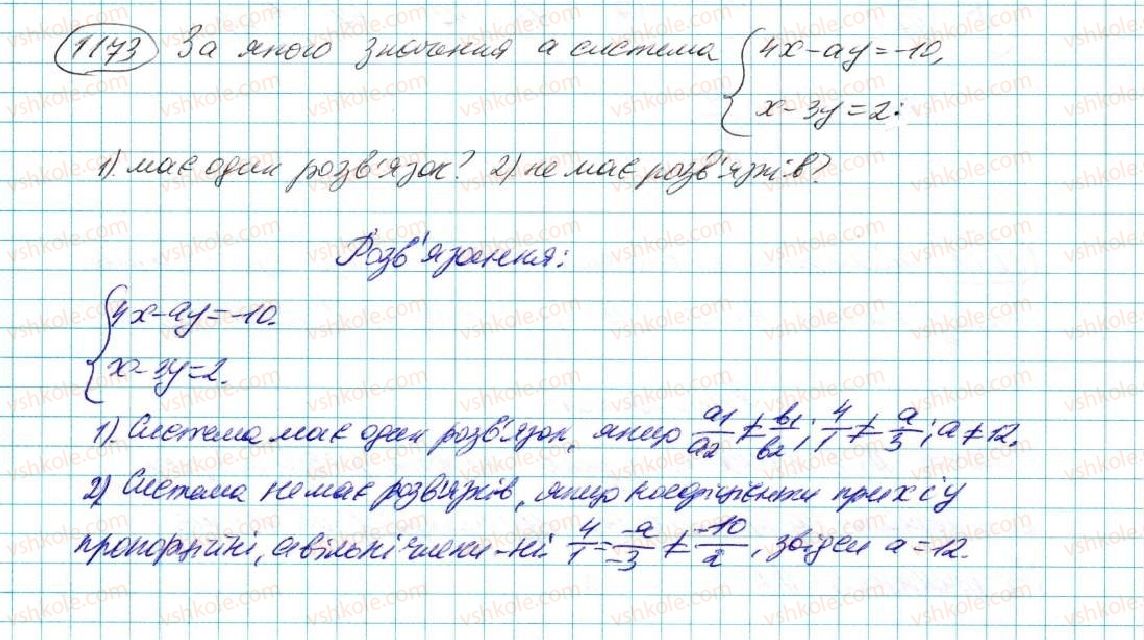 1173 За якого значення а система { 4x - ay = -10,
x - 3y = 2:
1) має один розв'язок? 2) не має розв'язків?
Розв'язання:
{ 4x - ay = -10.
x - 3y = 2.
1). Система має один розв'язок, якщо a1/a2 ≠ b1/b2; 4/1 ≠ a/3; a ≠ 12.
2) Система не має розв'язків, якщо коефіцієнти при x і y
пропорційні, а вільні члени - ні 4/1 = -a/-3 ≠ -10/2, звідси a = 12.